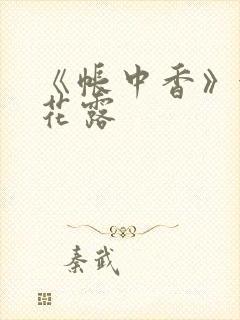 《帳中香》
花露
秦武